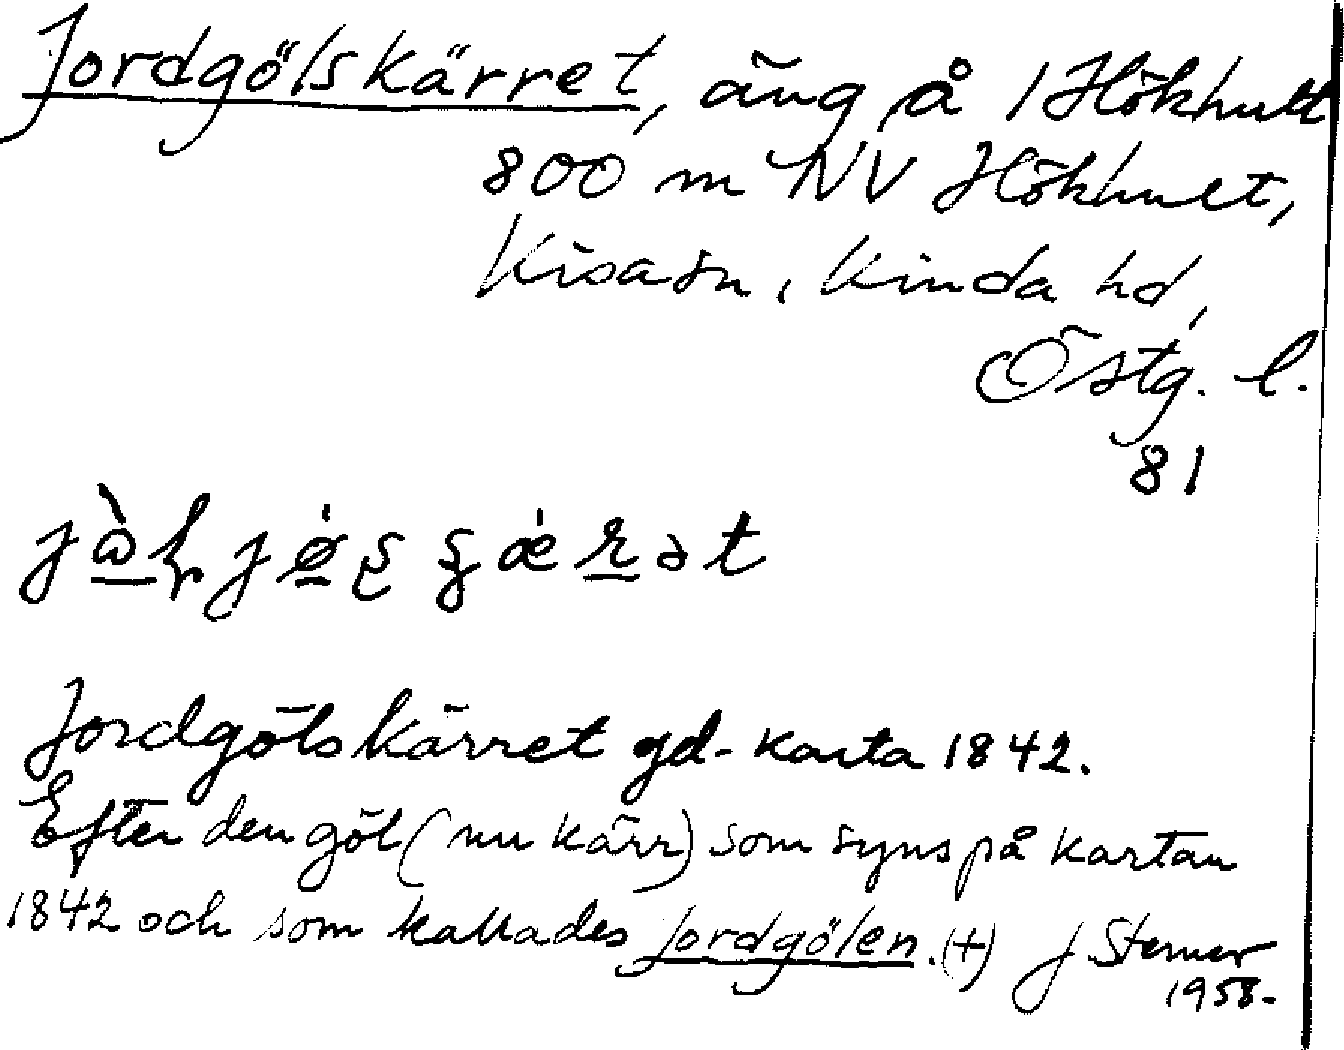 Jordgölskärret, äng på 1 Hökhult
800 m NV Hökhult,
Kisa sn, Kinda hd,
Östg. l.
81
Jordgölskärret gd-karta 1842.
Efter den göl (nu kärr) som syns på kartan
1842 och som kallades Jordgölen. (+) J Sterner
1958-